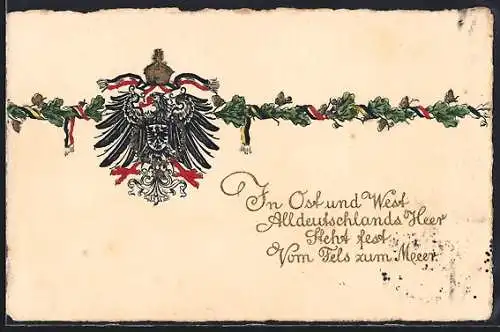 In Ost und West
Alldeutschlands Heer
Steht fest
Vom Fels zum Meer